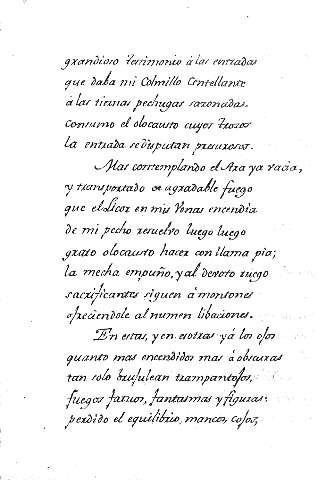 grandioso testimonio á las entradas
que daba mi Colmillo Centellante
á las tiernas pechugas sazonadas.
Consumo el olocausto cuyos trozos
la entrada se disputan presurosos.
Mas contemplando el Ara ya vacia,
y transportado de agradable fuego
que el Licor en mis Venas encendia
de mi pecho resuelvo luego luego
grato olocausto hacer con llama pia;
la mecha empuño, y al devoto ruego
sacrificantes siguen á montones
ofreciendole al numen libaciones.
En estas, y en esotras yá los ojos
quanto mas encendidos mas á obscuras
tan solo brujulean trampantojos,
fuegos fatuos, fantasmas y figuras:
perdido el equilibrio, mancos, cojos,